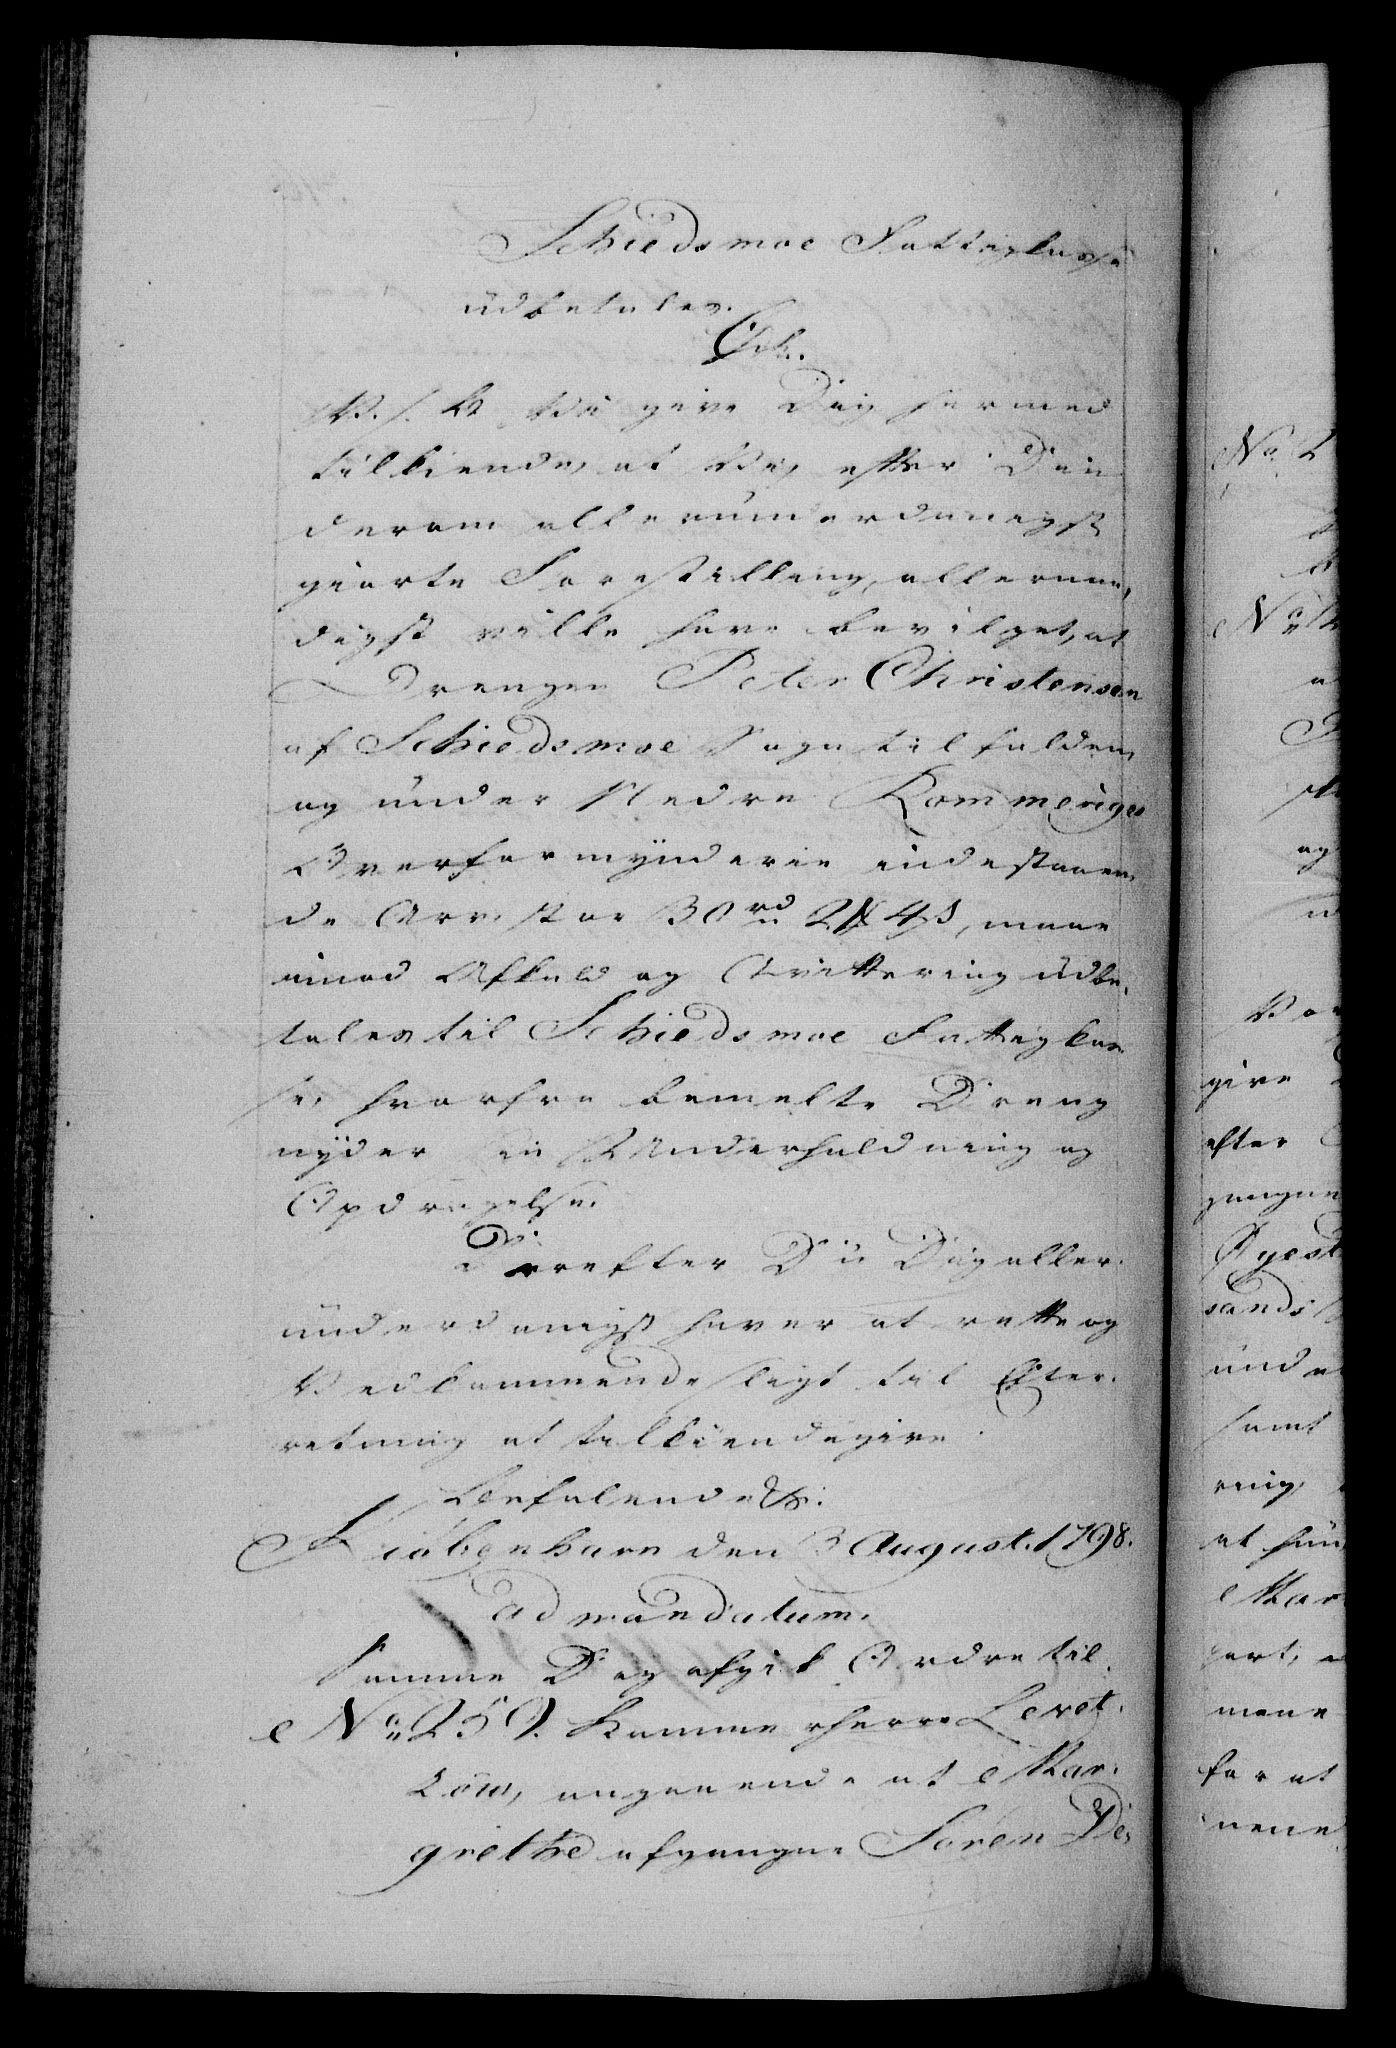 Schiedsmoe Fattigkasse
udbetales.
C7de.
V. s. V. Vii give Dig hermed
tilkiende, at Vii, efter Din
derom allerunderdanigst
giorte Forestilling, allernaa,
digst ville have bevilget, at
Drengen Peter Christensen
af Schiedsmoe Sogn tilfalden,
og under Nedre Rommeriges
Overformynderie indestaaen,
de Arv, stor 30 rd 2 ß 4 s, maae
imod Afkald og Qvittering udbe,
tales til Schiedsmoe Fattigkas
se, hvorfra bemelte Dreng
nyder sin Underholdning og
Opdragelse.
Derefter Du Dig aller,
underdanigst haver at rette og
Vedkommende sligt til Efter,
retning at tilkiendegive.
Befalende &c:
Kiøbenhavn den 3 August. 1798.
ad mandatum.
Samme Dag afgik Ordre til
No 259. Kammerherre Levet,
zow, angaaende at Mar,
grethe afgangne Søren De,